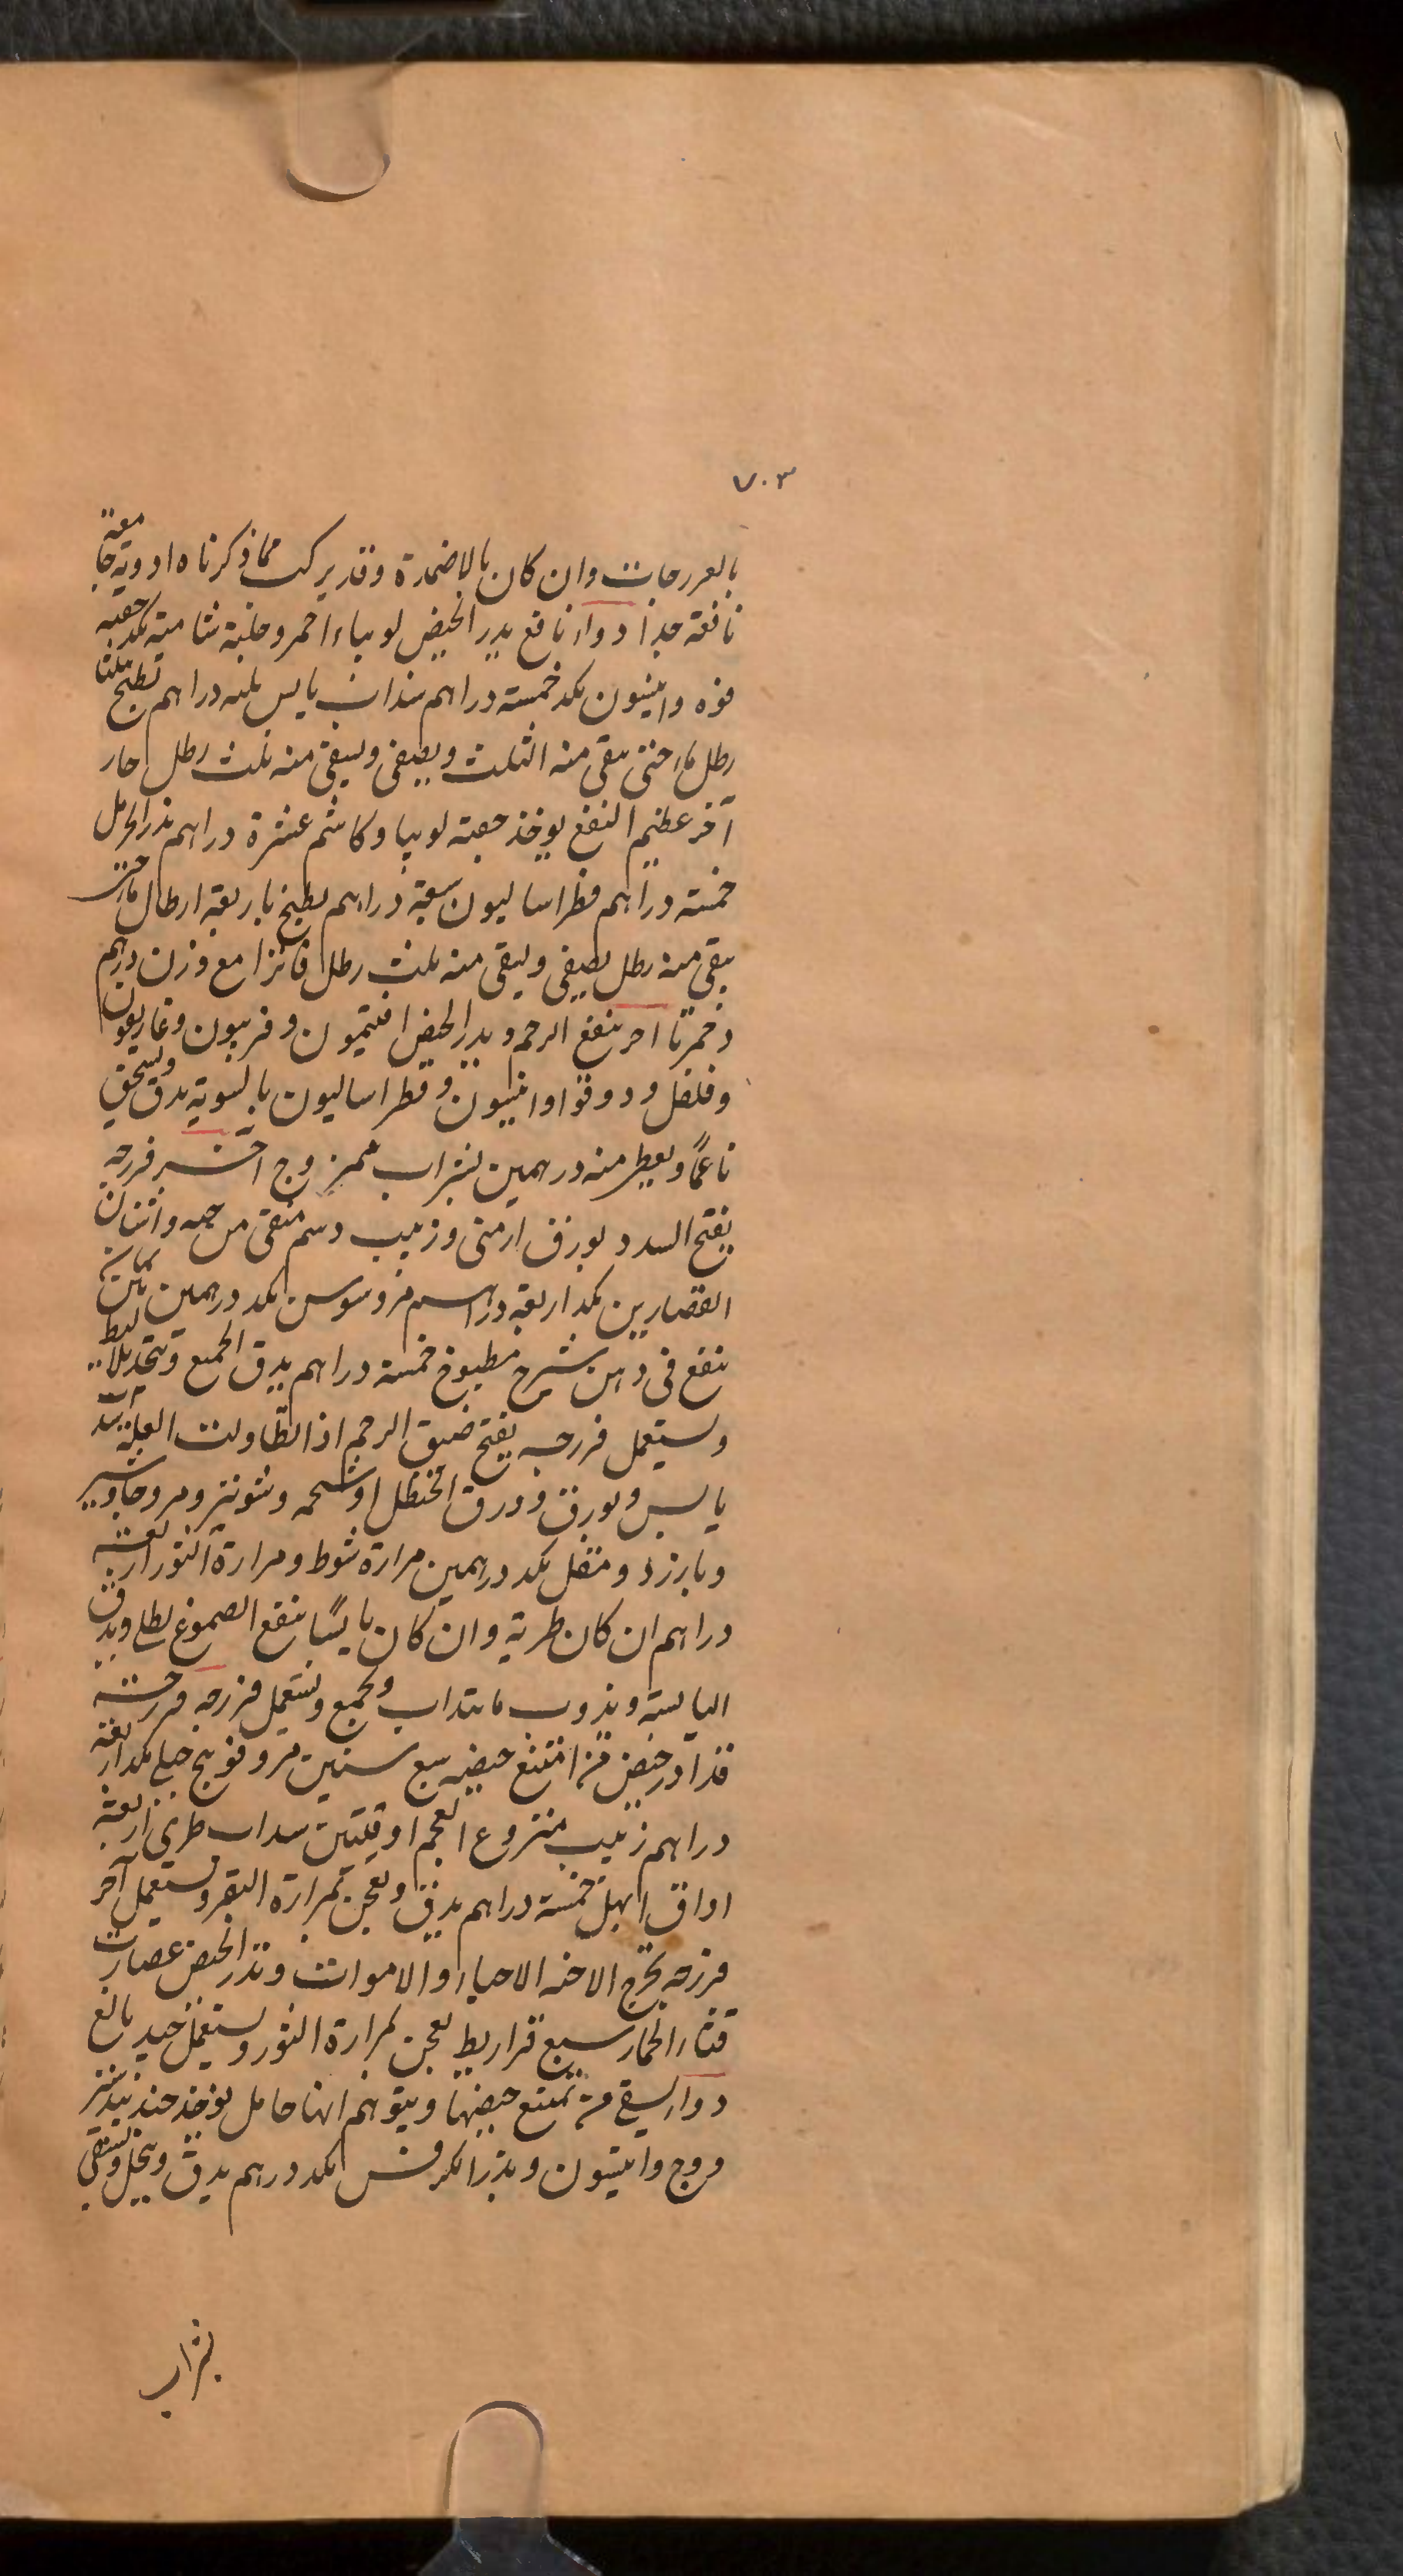 ٧٠٣
بالفرزجات وان كان بالاضمدة وقد يركب مما ذكرناه ادوية جامعة
نافعة جدا دواء نافع يدر الحيض لوبياء احمر وحلبة شامية مكد حفنه
فوه وانيسون مكد خمسة دراهم سذاب يابس ثلثه دراهم تطبخ بثلثا
رطل ماء حتى يبقى منه الثلث ويصفى ويسقى منه ثلث رطل حار
آخر عظيم النفع يوخذ حفنة لوبيا وكاشم عشرة دراهم بذر الحرمل
خمسة دراهم فطراساليون سبعة دراهم يطبخ باربعة ارطال ماء حتى
يبقى منه رطل يصفى ويسقى منه ثلث رطل فاترا مع وزن درهم
دحمرتا اخر ينفع الرحم ويدر الحيض افتيمون وفربيون وغاريقون
وفلفل ودوقوا وانيسون وفطراساليون بالسوية يدق ويسحق
ناعمًا ويعطى منه درهمين بشراب ممزوج آخر فرزجه
يفتح السدد بورق ارمنى وزبيب دسم منقى من حبه واشنان
القصارين مكد اربعة دراهم مر وسوسن مكد درهمين تين
ينقع فى دهن شيرج مطبوخ خمسة دراهم يدق الجميع وتتخذ بلاليط
ويستعمل فرزجه يفتح ضيق الرحم اذا تطاولت العلة
يابس وبورق وورق الحنظل او شحمه وشونيز ومر وجاوشير
وبارزد ومقل مكد درهمين مرارة شوط ومرارة الثور اربعة
دراهم ان كان طرية وان كان يابسًا ينقع الصموغ بطلا ويدق
اليابسة ويذوب ماء سداب ويجمع ويستعمل فرزجه فرزجة
قد ادر حيض من امتنع حيضه سبع سنين مر وفوتنج جبلى مكد اربعة
دراهم زبيب منزوع العجم اوقيتين سداب طرى اربعة
اواق ابهل خمسة دراهم يدق ويعجن بمرارة البقر ويستعمل آخر
فرزجه يخرج الاجنه الاحياء والاموات وتدر الحيض عصارت
قثاء الحمار سبع قراريط يعجن بمرارة الثور ويستعمل جيد بالغ
دواء يسقى من تمنع حيضها ويتوهم انها حامل يوخذ جندبيدستر
ووج وانيسون وبذر الكرفس مكد درهم يدق وينخل ويستقى
بشراب